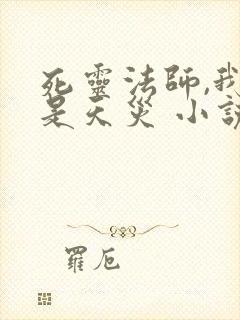 死靈法師,我
是天災 小說
羅厄